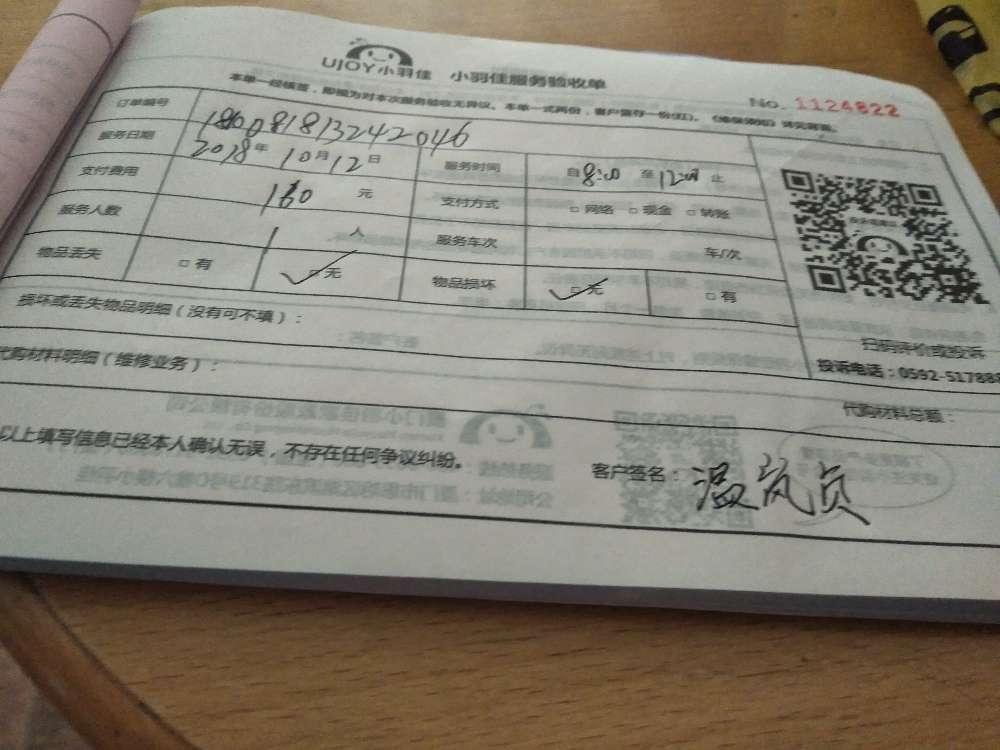 UJOY小羽佳 小羽佳服务验收单
No. 1124822
本单一经核签，即视为对本次服务验收无异议。本单一式两份，客户留存一份(红)。
订单编号 180081813242046
服务日期 2018年10月12日 服务时间 自8:00至12:00止
支付费用 160元 支付方式 □网络 □现金 □转账
服务人数 1人 服务车次 车/次
物品丢失 □有 □无 物品损坏 □无 □有
损坏或丢失物品明细（没有可不填）：
扫码评价或投诉
投诉电话：0592-517888
代购材料明细（维修业务）：
代购材料总额：
以上填写信息已经本人确认无误，不存在任何争议纠纷。
客户签名：温岚贞